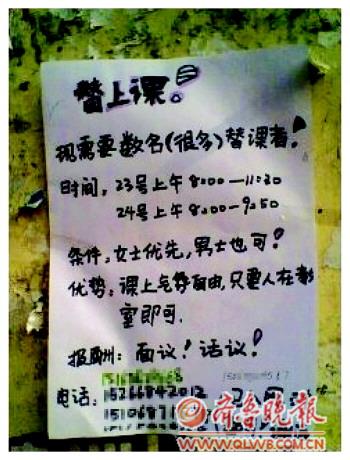 替上课!
现需要数名(很多)替课者!
时间:23号上午8:00—11:30
24号上午8:00-9:50
条件:女士优先,男士也可!
优势:课上气氛自由,只要人在教
室即可.
报酬:面议!话议!
电话:
齐鲁晚报
WWW.QLWB.COM.CN